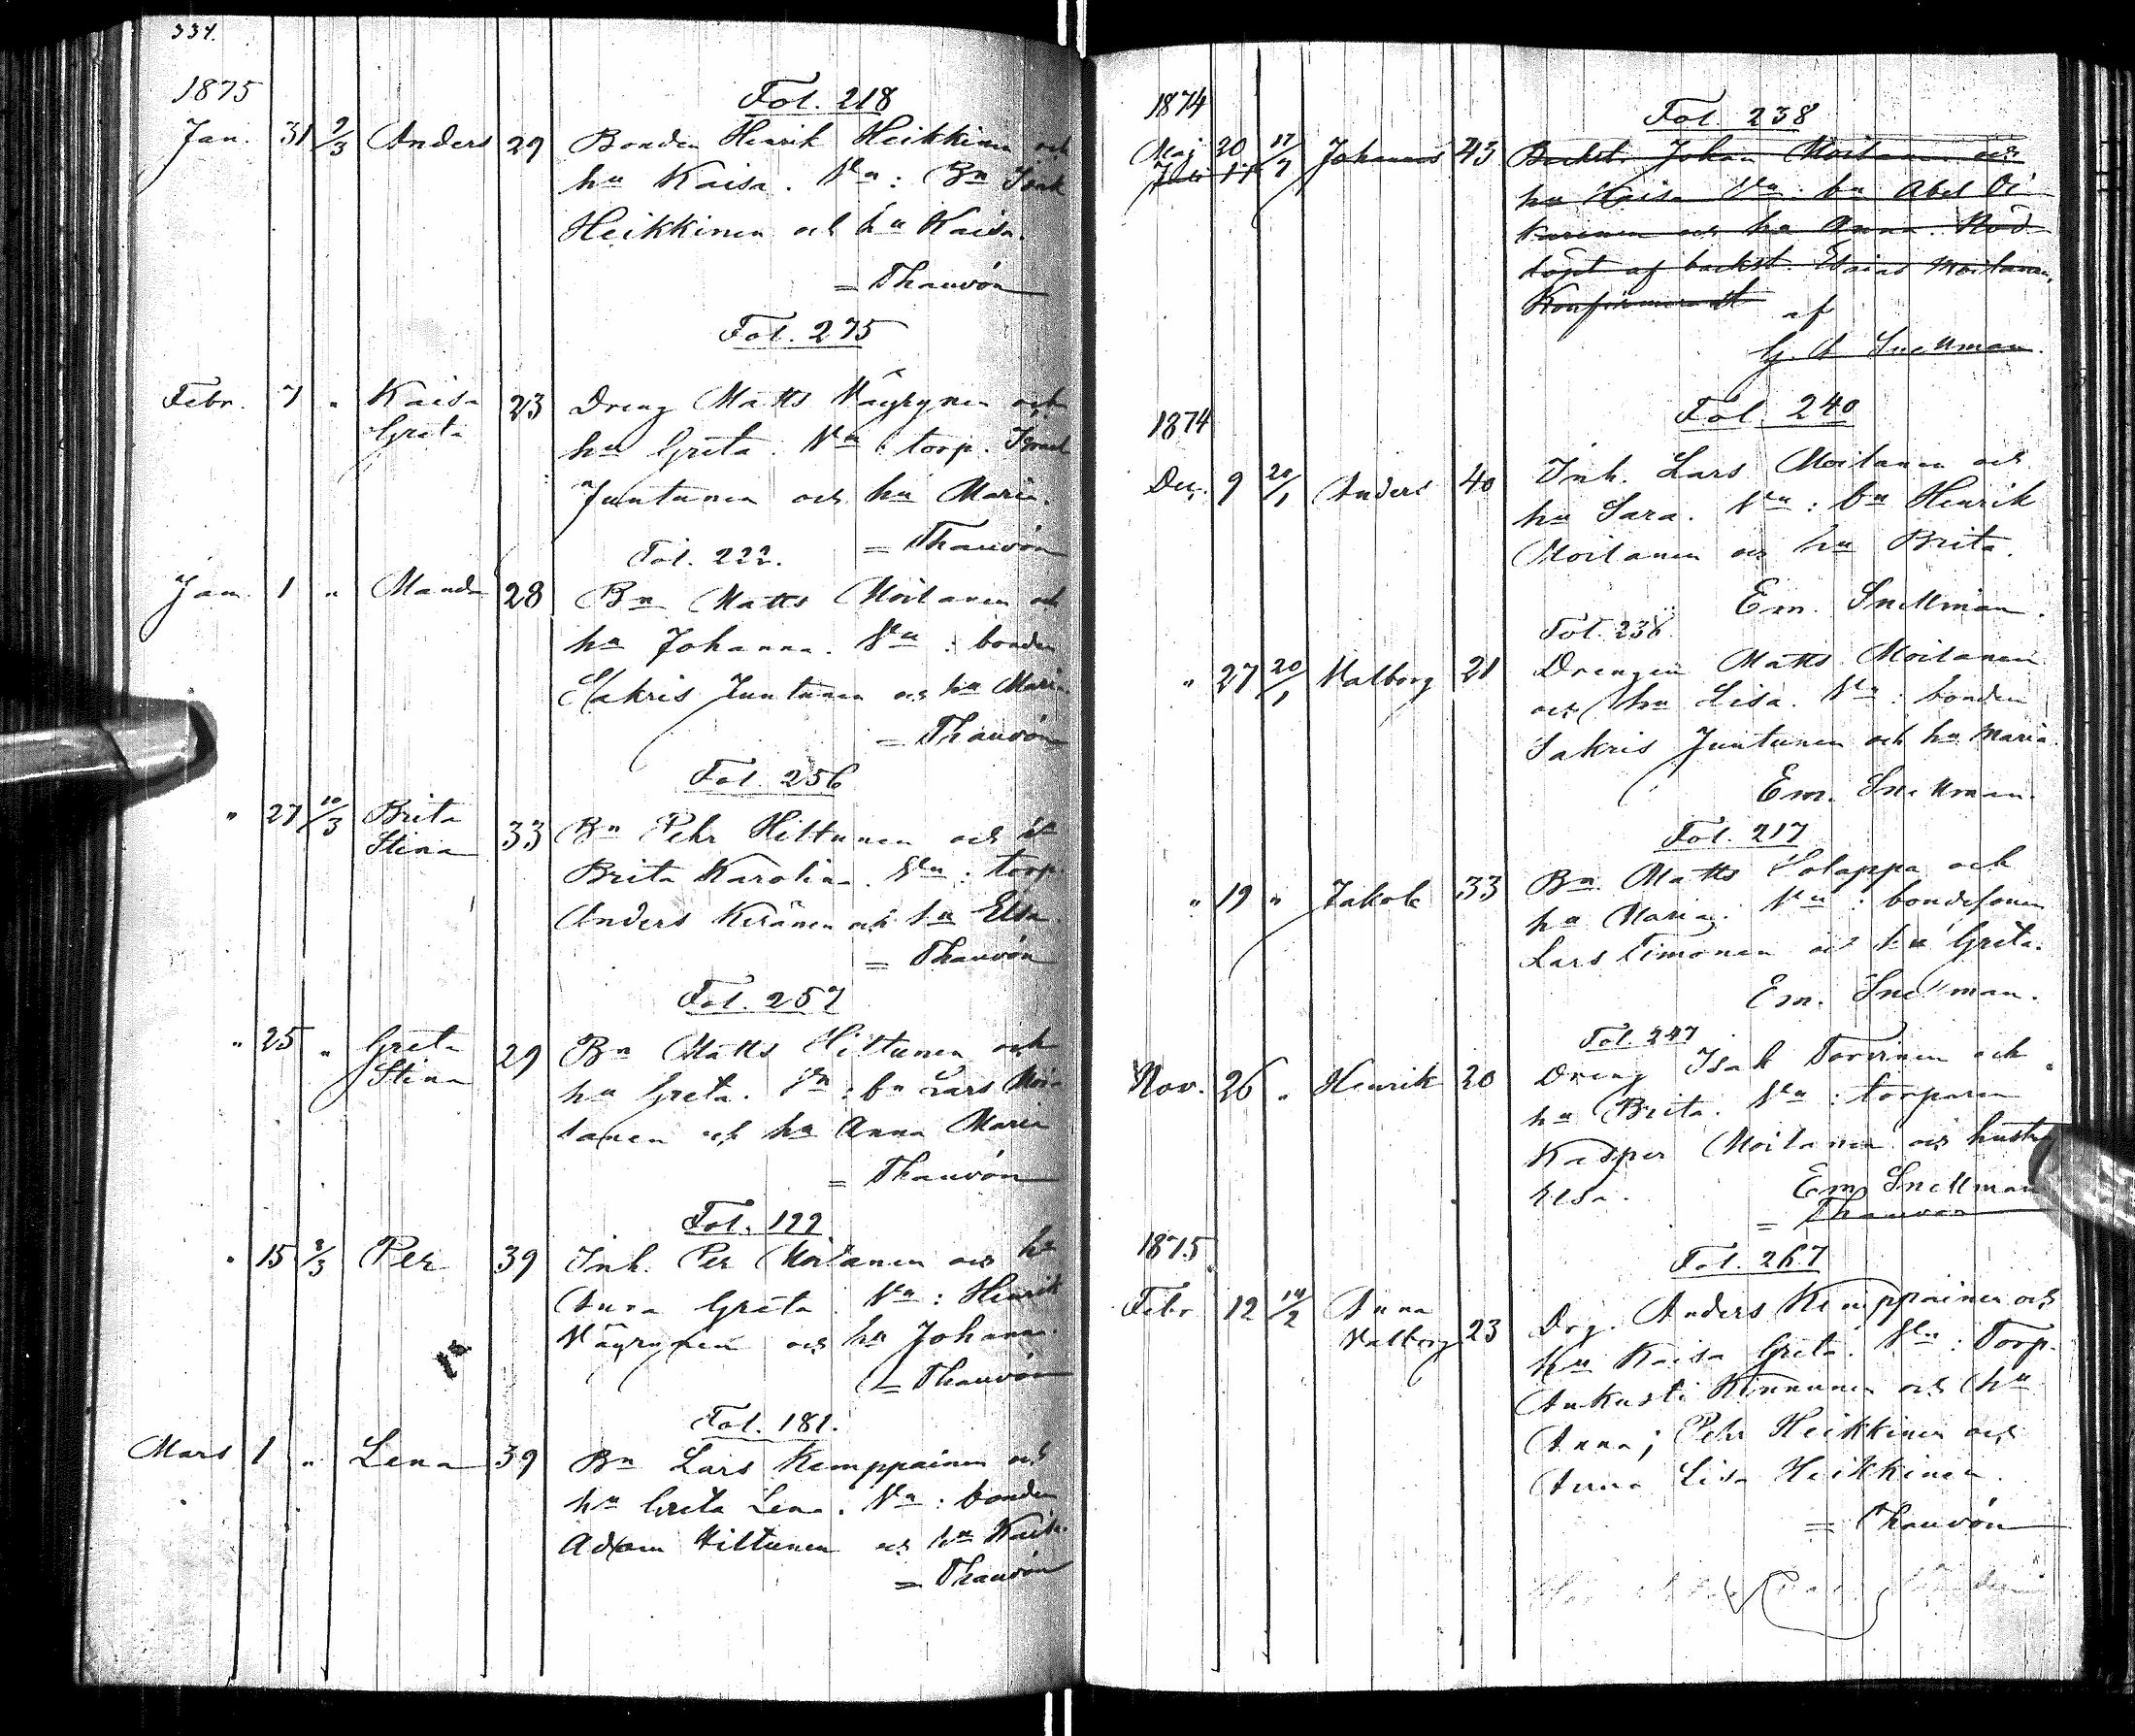 334.
1875
Fol. 218
Jan. 31 7/3 Anders 29 Bonden Henrik Heikkinen och
hu Kaisa. Vn: Bn Isak
Heikkinen och hu Kaisa.
= Thauvón
Fol. 275
Febr. 7 " Kaisa Greta 23 Dreng Matts Väyrynen och
hu Greta. Vn: torp. Israel
Juntunen och hu Maria.
= Thauvón
Fol. 222.
Jan. 1 " Manda 28 Bn Matts Moilanen och
hu Johanna. Vn: bonden
Sakris Juntunen och hu Maria
= Thauvón
Fol. 256
" 27 10/3 Brita Stina 33 Bn Pehr Hiltunen och
Brita Karolina. Vn: torp.
Anders Keränen och hu Elsa.
= Thauvón
Fol. 257
" 25 " Greta Stina 29 Bn Matts Hiltunen och
hu Greta. Vn: bn Lars Moi-
lanen och hu Anna Maria
= Thauvón
Fol. 199
" 15 2/3 Per 39 Inh. Per Moilanen och hu
Anna Greta. Vn: Henrik
Väyrynen och hu Johanna.
= Thauvón
Fol. 181.
Mars 1 " Lena 39 Bn Lars Kemppainen och
hu Greta Lena. Vn: bonden
Adam Hiltunen och hu Kaisa.
= Thauvón
1874
Fol. 238
Maj 20 17/7 Johannes 43 Backst. Johan Moilanen och
Juli 17
hu Kaisa Vn: bn Abel Oi-
karinen och hu Anna. Nöd-
döpt af backst. Esaias Moilanen,
Konfirmeradt af
G. A Snellman.
Fol. 240
1874
Dec. 9 20/1 Anders 40 Inh. Lars Moilanen och
hu Sara. Vn: bn Henrik
Moilanen och hu Brita.
Em. Snellman.
Fol. 238.
" 27 20/1 Valborg 21 Drengen Matts Moilanen
och hu Lisa. Vn: bonden
Sakris Juntunen och hu Maria.
Em. Snellman.
Fol. 217
" 19 " Jakob 33 Bn Matts Solappa och
hu Maria. Vn: bondesonen
Lars Timonen och hu Greta.
Em. Snellman.
Fol. 247
Nov. 26 " Henrik 20 Dreng Isak Torvinen och
hu Brita. Vn: torparen
Kasper Moilanen och hustru
Elsa. Em. Snellman
= Thauvón
1875
Fol. 267
Febr 12 14/2 Anna Valborg 23 Drg. Anders Kemppainen och
hu Kaisa Greta. Vn: Torp.
Aukusti Kinnunen och hu
Anna; Pehr Heikkinen och
Anna Lisa Heikkinen.
= Thauvón